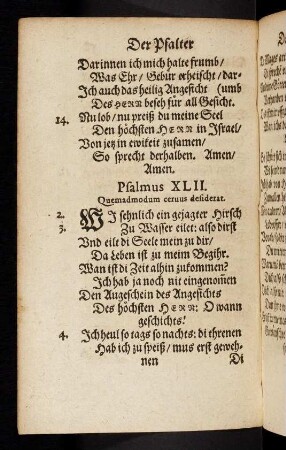 Der Psalter
Darinnen ich mich halte frumb/
Was Ehr/ Gebür erheischt/ dar-
Ich auch das heilig Angesicht (umb
Des HERN beseh für all Gesicht.
14. Nu lob/ nu preiß du meine Seel
Den höchsten HERN in Israel/
Von jetz in ewikeit zusamen/
So sprecht derhalben. Amen/
Amen.
Psalmus XLII.
Quemadmodum ceruus desiderat.
2. WI sehnlich ein gejagter Hirsch
3. Zu Wasser eilet: also dirst
Vnd eilt di Seele mein zu dir/
Da Leben ist zu mein Begihr.
Wan ist di Zeit alhin zukommen?
Ich hab ja noch nit eingenomen
Den Augeschein des Angesichts
Des höchsten HERN: O wann
geschichts!
4. Ich heul so tags so nachts: di threnen
Hab ich zu speiß/ mus erst geweh-
nen Di